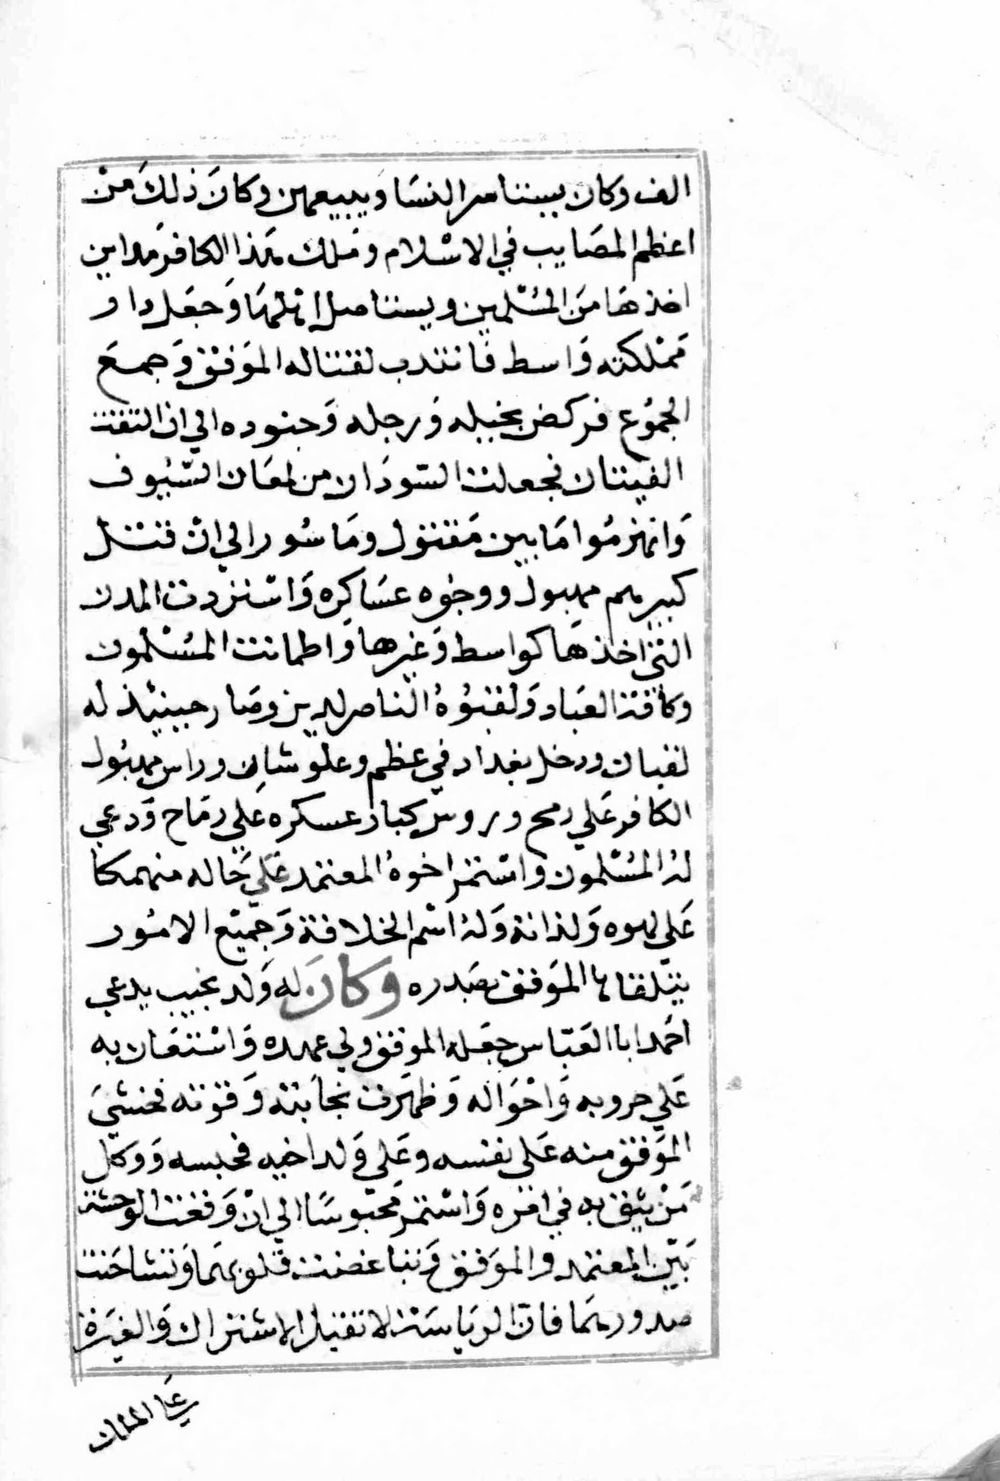 الف وكان يستاسر النسا ويبيعهن وكان ذلك من
اعظم المصايب في الاسلام وملك هذا الكافر مداين
اخذها من المسلمين ويستاصل اهلها وجعل دار
مملكته واسط فانتدب لقتاله الموفق وجمع
الجموع فركض بخيله ورجله وجنوده الي ان التقت
الفيتان فجعلت السودان من لمعان السيوف
وانهزموا ما بين مقتول وماسور الي ان قتل
كبيرهم مهبول ووجوه عساكره واستردت المدن
التي اخذها كواسط وغيرها واطمانت المسلمون
وكافة العباد ولقبوه الناصر لدين وصار حينيذ له
لقبان ودخل بغداد في عظم وعلو شان وراس مهبول
الكافر علي رمح وروس كبار عسكره علي رماح ودعي
له المسلمون واستمر اخوه المعتمد علي حاله منهمكا
علي لهوه ولذاته وله اسم الخلافة وجميع الامور
يتلقاها الموفق بصدره وكان له ولد نجيب يدعي
احمد ابا العباس جعله الموفق ولي عهده واستعان به
علي حروبه واحواله وظهرت نجابته وقوته فخشي
الموفق منه علي نفسه وعلي ولد اخيه فحبسه ووكل
من يثق به في امره واستمر محبوسا الي ان وقعت الوحشة
بين المعتمد والموفق وتباغضت قلوبهما وتشاحنت
صدورهما فان الرياسة لا تقبل الاشتراك والغيرة
علي الملك